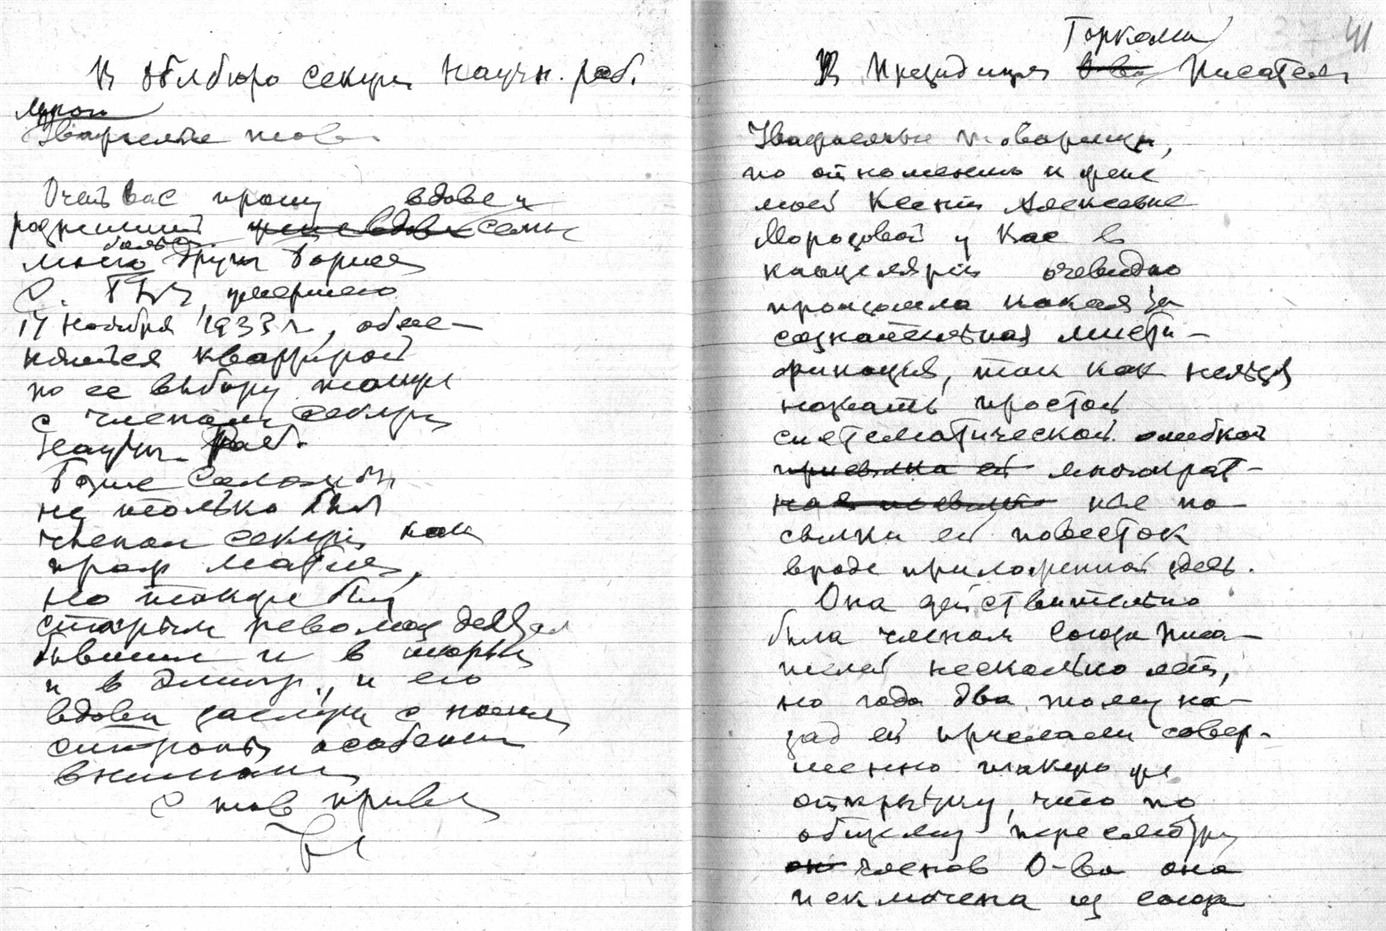 В Облбюро секции Научн. раб.
Уважаемые тов.
Очень вас прошу вдове и
родившей семье
моего друга Бориса
С. умершего
14 ноября 1933 г, обме-
няться квартирой
по ее выбору также
с членами секции
Научн. Раб.
Борис
не только был
членом секции как
проф.
но также был
старым революц
бывшим и в
и в эмигр., и его
вдова заслуж с нашей
стороны особенно
внимания
С тов приве
Горкома
В Президиум О-ва Писателей
Уважаемые товарищи,
по отношению к жене
моей Ксении Алексеевне
Морозовой у Вас в
канцелярии очевидно
произошла какая то
сознательная мисти-
фикация, так как нельзя
назвать простой
систематической ошибкой
присылка ей многократ-
ная по-
сылки ей повесток
вроде приложенной здесь.
Она действительно
была членом Союза Писа-
телей несколько лет,
но года два тому на-
зад ей прислали совер-
шенно такую же
открытку, что по
общему пересмотру
членов О-ва она
исключена из союза